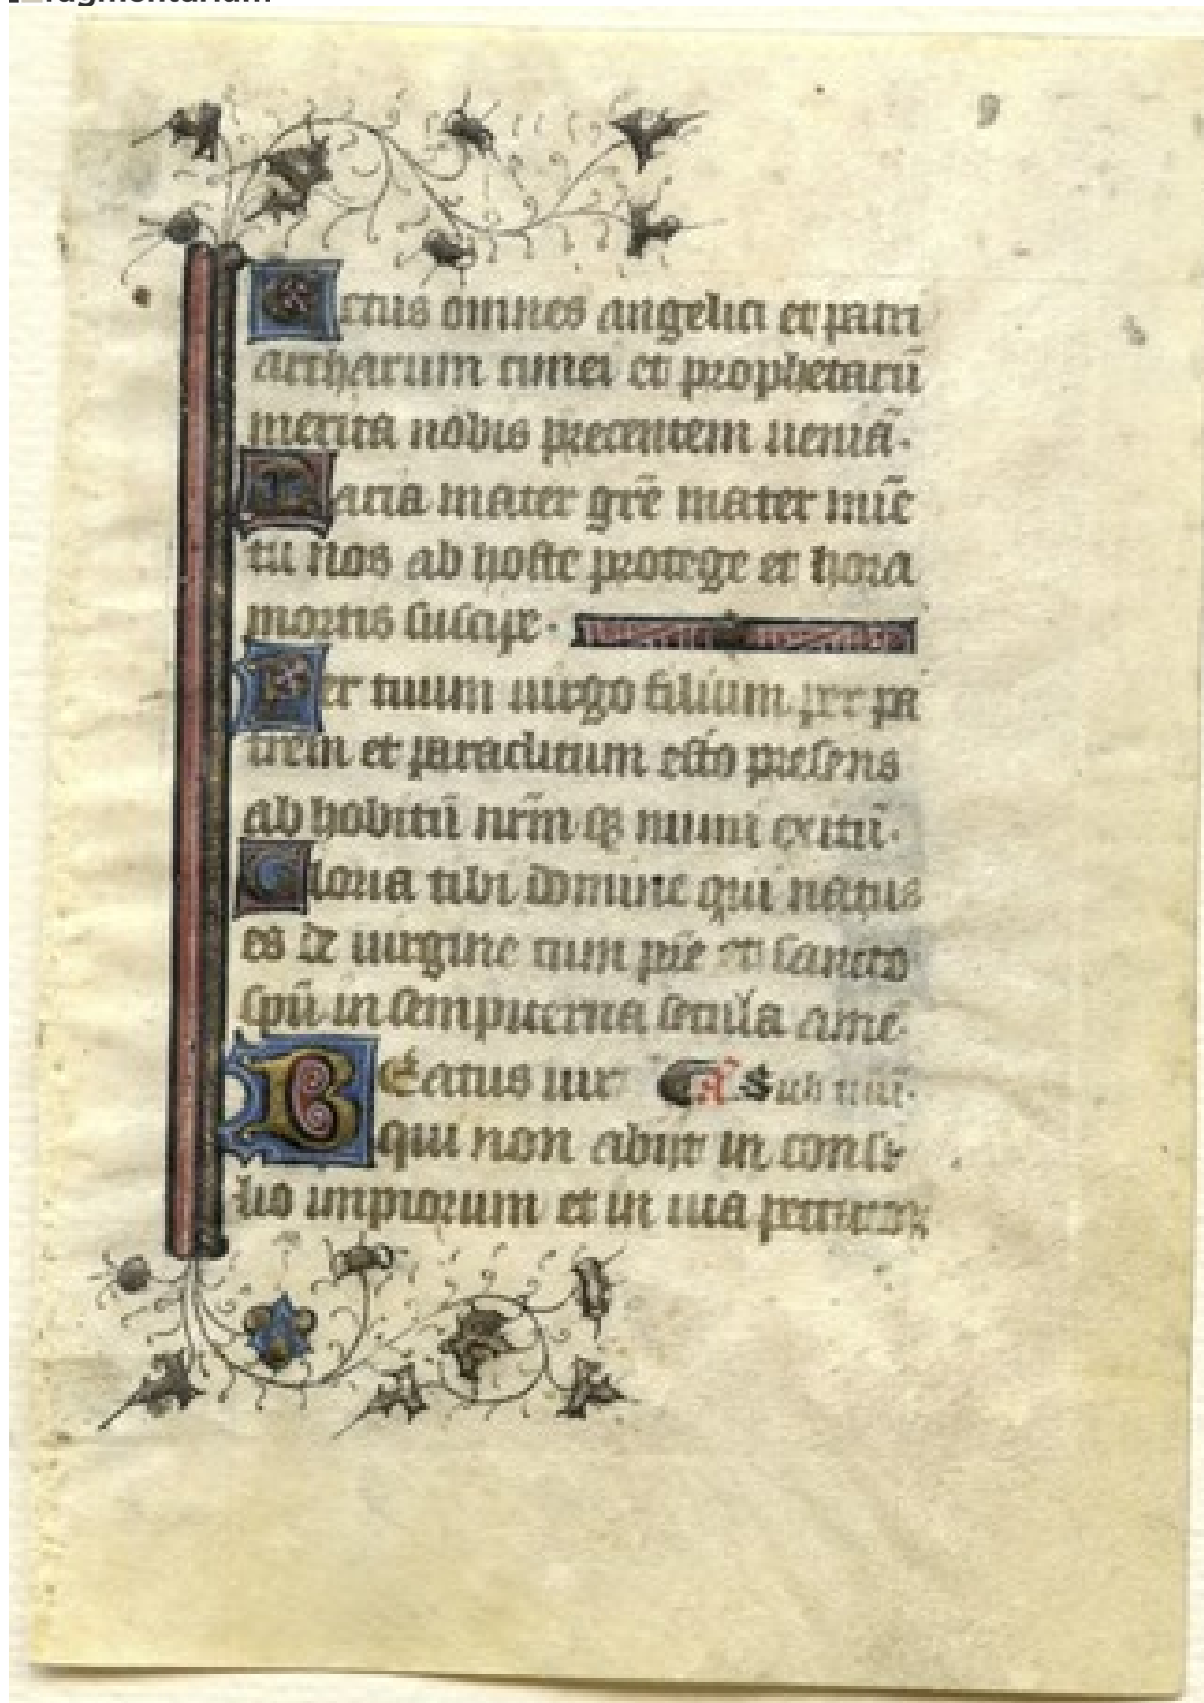 Cetus omnes angelici et patri
archarum cunei et prophetarū
merita nobis precentem ueniā.
Maria mater gr̄e mater mīe
tu nos ab hoste protege et hora
mortis suscipe.
Per tuum uirgo filium per pa
trem et paraclitum esto presens
ab hobitū nr̄m qꝫ numi exitū.
Gloria tibi domine qui natus
es de uirgine cum pr̄e et sancto
spū in sempiterna secula amē.
BEatus uir A᷃ Sub
qui non abijt in consi
lio impiorum et in uia peccatoꝝ